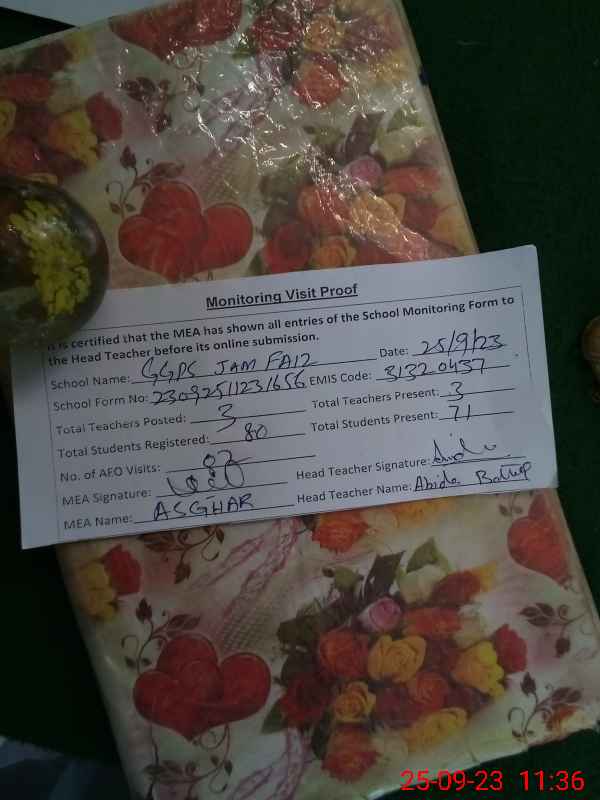 Monitoring Visit Proof
It is certified that the MEA has shown all entries of the School Monitoring Form to
the Head Teacher before its online submission.
School Name: GGPS JAM FAIZ Date: 25/9/23
School Form No: 23092511231656 EMIS Code: 31320437
Total Teachers Posted: 3 Total Teachers Present: 3
Total Students Registered: 80 Total Students Present: 71
No. of AEO Visits: 02
MEA Signature: Head Teacher Signature:
MEA Name: ASGHAR Head Teacher Name: Abida
25-09-23 11:36